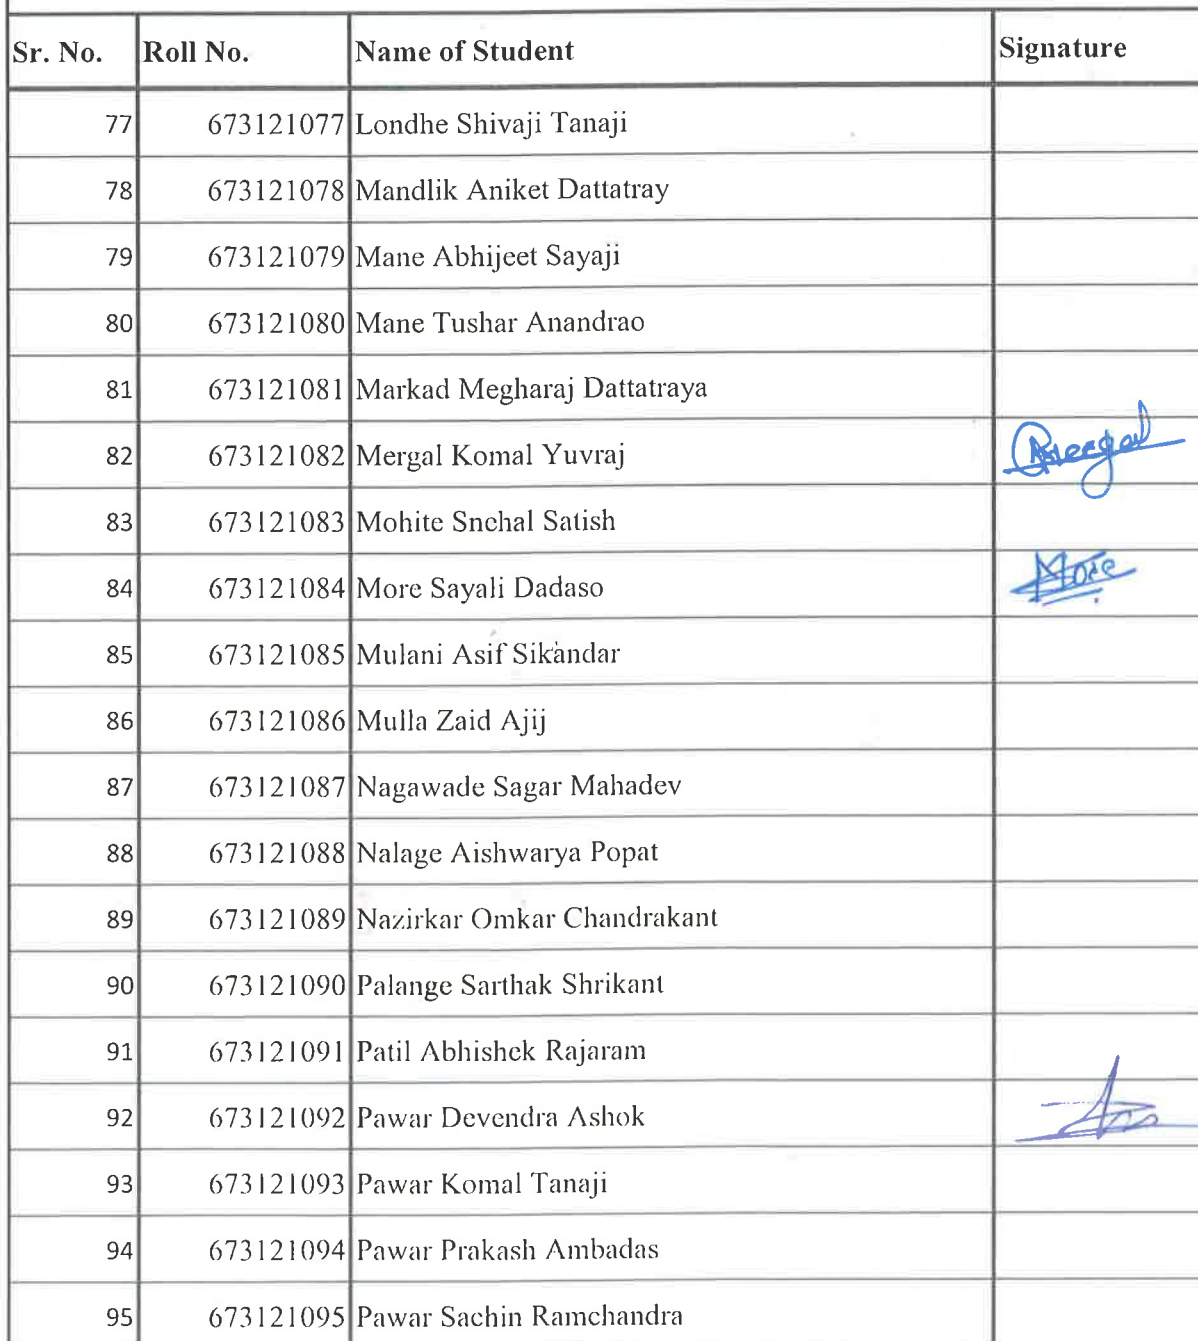 Sr. No. Roll No. Name of Student Signature
77 673121077 Londhe Shivaji Tanaji
78 673121078 Mandlik Aniket Dattatray
79 673121079 Mane Abhijeet Sayaji
80 673121080 Mane Tushar Anandrao
81 673121081 Markad Megharaj Dattatraya
82 673121082 Mergal Komal Yuvraj
83 673121083 Mohite Snehal Satish
84 673121084 More Sayali Dadaso More
85 673121085 Mulani Asif Sikandar
86 673121086 Mulla Zaid Ajij
87 673121087 Nagawade Sagar Mahadev
88 673121088 Nalage Aishwarya Popat
89 673121089 Nazirkar Omkar Chandrakant
90 673121090 Palange Sarthak Shrikant
91 673121091 Patil Abhishek Rajaram
92 673121092 Pawar Devendra Ashok
93 673121093 Pawar Komal Tanaji
94 673121094 Pawar Prakash Ambadas
95 673121095 Pawar Sachin Ramchandra